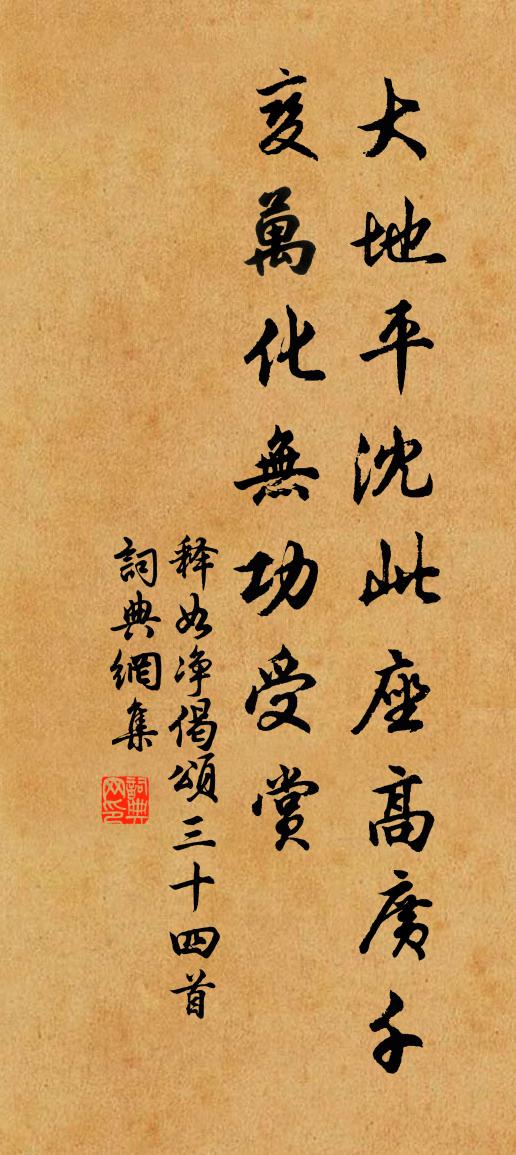 大地平沈此座高廣千
变萬化無功受赏
释如净偈頌三十四首
詞典網集
詞典网印